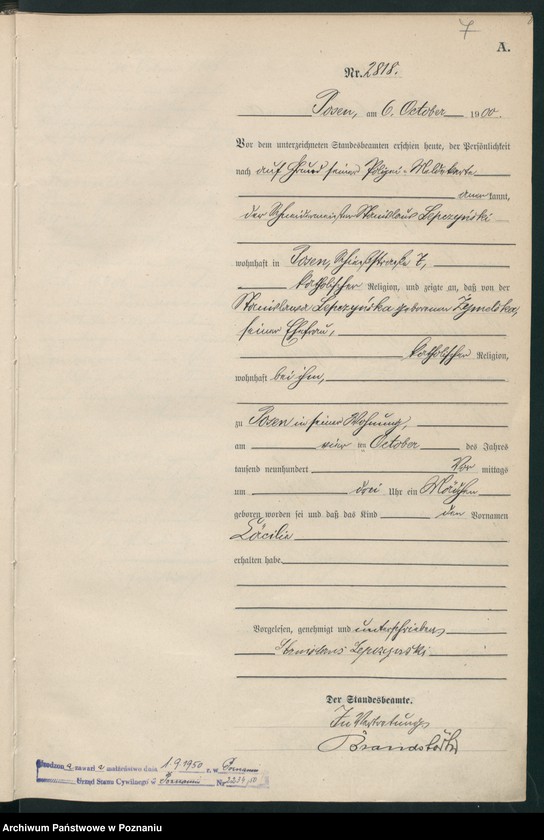 7
A.
Nr. 2818.
Posen, am 6. October 1900.
Vor dem unterzeichneten Standesbeamten erschien heute, der Persönlichkeit
nach auf Grund seiner Polizei-Meldekarte
anerkannt,
der Schneidermeister Stanislaus Lepczyński
wohnhaft in Posen, Schießstraße 7,
katholischer Religion, und zeigte an, daß von der
Stanislawa Lepczyńska geborenen
seiner Ehefrau,
katholischer Religion,
wohnhaft bei ihm,
zu Posen in seiner Wohnung,
am vier ten October des Jahres
tausend neunhundert Vor mittags
um drei Uhr ein Mädchen
geboren worden sei und daß das Kind den Vornamen
Cäcilie
erhalten habe
Vorgelesen, genehmigt und unterschrieben
Stanislaus Lepczyński
Der Standesbeamte.
In Vertretung
Urodzona zawarł a małżeństwo dnia 1.9.1950 r. w Poznaniu
Urząd Stanu Cywilnego w Poznaniu Nr
Archiwum Państwowe w Poznaniu